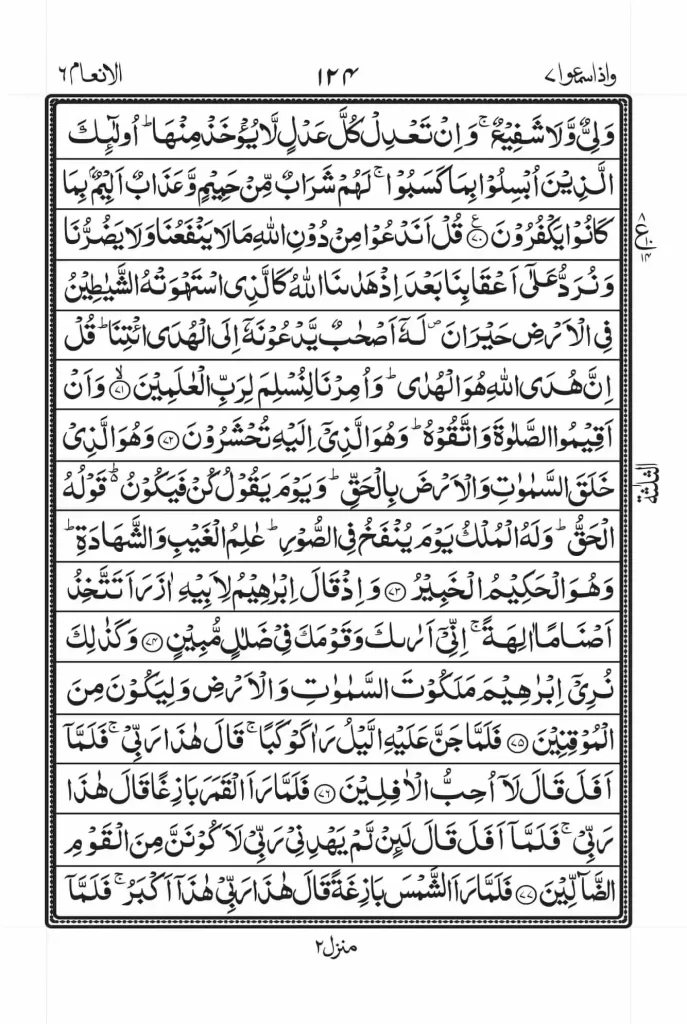 واذاسمعوا ٧
١٢٤
الانعام ٦
وَلِيٌّ وَّلَا شَفِيْعٌ ۚ وَاِنْ تَعْدِلْ كُلَّ عَدْلٍ لَّا يُؤْخَذْ مِنْهَا ؕ اُولٰٓئِكَ
الَّذِيْنَ اُبْسِلُوْا بِمَا كَسَبُوْا ۚ لَهُمْ شَرَابٌ مِّنْ حَمِيْمٍ وَّعَذَابٌ اَلِيْمٌۢ بِمَا
كَانُوْا يَكْفُرُوْنَ ۧ ﴿٧٠﴾ قُلْ اَنَدْعُوْا مِنْ دُوْنِ اللّٰهِ مَا لَا يَنْفَعُنَا وَلَا يَضُرُّنَا
وَنُرَدُّ عَلٰٓى اَعْقَابِنَا بَعْدَ اِذْ هَدٰىنَا اللّٰهُ كَالَّذِى اسْتَهْوَتْهُ الشَّيٰطِيْنُ
فِى الْاَرْضِ حَيْرَانَ ۪ لَهٗۤ اَصْحٰبٌ يَّدْعُوْنَهٗۤ اِلَى الْهُدَى ائْتِنَا ؕ قُلْ
اِنَّ هُدَى اللّٰهِ هُوَ الْهُدٰى ؕ وَاُمِرْنَا لِنُسْلِمَ لِرَبِّ الْعٰلَمِيْنَ ۙ ﴿٧١﴾ وَاَنْ
اَقِيْمُوا الصَّلٰوةَ وَاتَّقُوْهُ ؕ وَهُوَ الَّذِيْۤ اِلَيْهِ تُحْشَرُوْنَ ﴿٧٢﴾ وَهُوَ الَّذِيْ
خَلَقَ السَّمٰوٰتِ وَالْاَرْضَ بِالْحَقِّ ؕ وَيَوْمَ يَقُوْلُ كُنْ فَيَكُوْنُ ۬ؕ قَوْلُهُ
الْحَقُّ ؕ وَلَهُ الْمُلْكُ يَوْمَ يُنْفَخُ فِى الصُّوْرِ ؕ عٰلِمُ الْغَيْبِ وَالشَّهَادَةِ ؕ
وَهُوَ الْحَكِيْمُ الْخَبِيْرُ ﴿٧٣﴾ وَاِذْ قَالَ اِبْرٰهِيْمُ لِاَبِيْهِ اٰزَرَ اَتَتَّخِذُ
اَصْنَامًا اٰلِهَةً ۚ اِنِّيْۤ اَرٰىكَ وَقَوْمَكَ فِيْ ضَلٰلٍ مُّبِيْنٍ ﴿٧٤﴾ وَكَذٰلِكَ
نُرِيْۤ اِبْرٰهِيْمَ مَلَكُوْتَ السَّمٰوٰتِ وَالْاَرْضِ وَلِيَكُوْنَ مِنَ
الْمُوْقِنِيْنَ ﴿٧٥﴾ فَلَمَّا جَنَّ عَلَيْهِ الَّيْلُ رَاٰ كَوْكَبًا ۚ قَالَ هٰذَا رَبِّيْ ۚ فَلَمَّاۤ
اَفَلَ قَالَ لَاۤ اُحِبُّ الْاٰفِلِيْنَ ﴿٧٦﴾ فَلَمَّا رَاَ الْقَمَرَ بَازِغًا قَالَ هٰذَا
رَبِّيْ ۚ فَلَمَّاۤ اَفَلَ قَالَ لَئِنْ لَّمْ يَهْدِنِيْ رَبِّيْ لَاَكُوْنَنَّ مِنَ الْقَوْمِ
الضَّآلِّيْنَ ﴿٧٧﴾ فَلَمَّا رَاَ الشَّمْسَ بَازِغَةً قَالَ هٰذَا رَبِّيْ هٰذَاۤ اَكْبَرُ ۚ فَلَمَّاۤ
الثلثة
منزل ٢